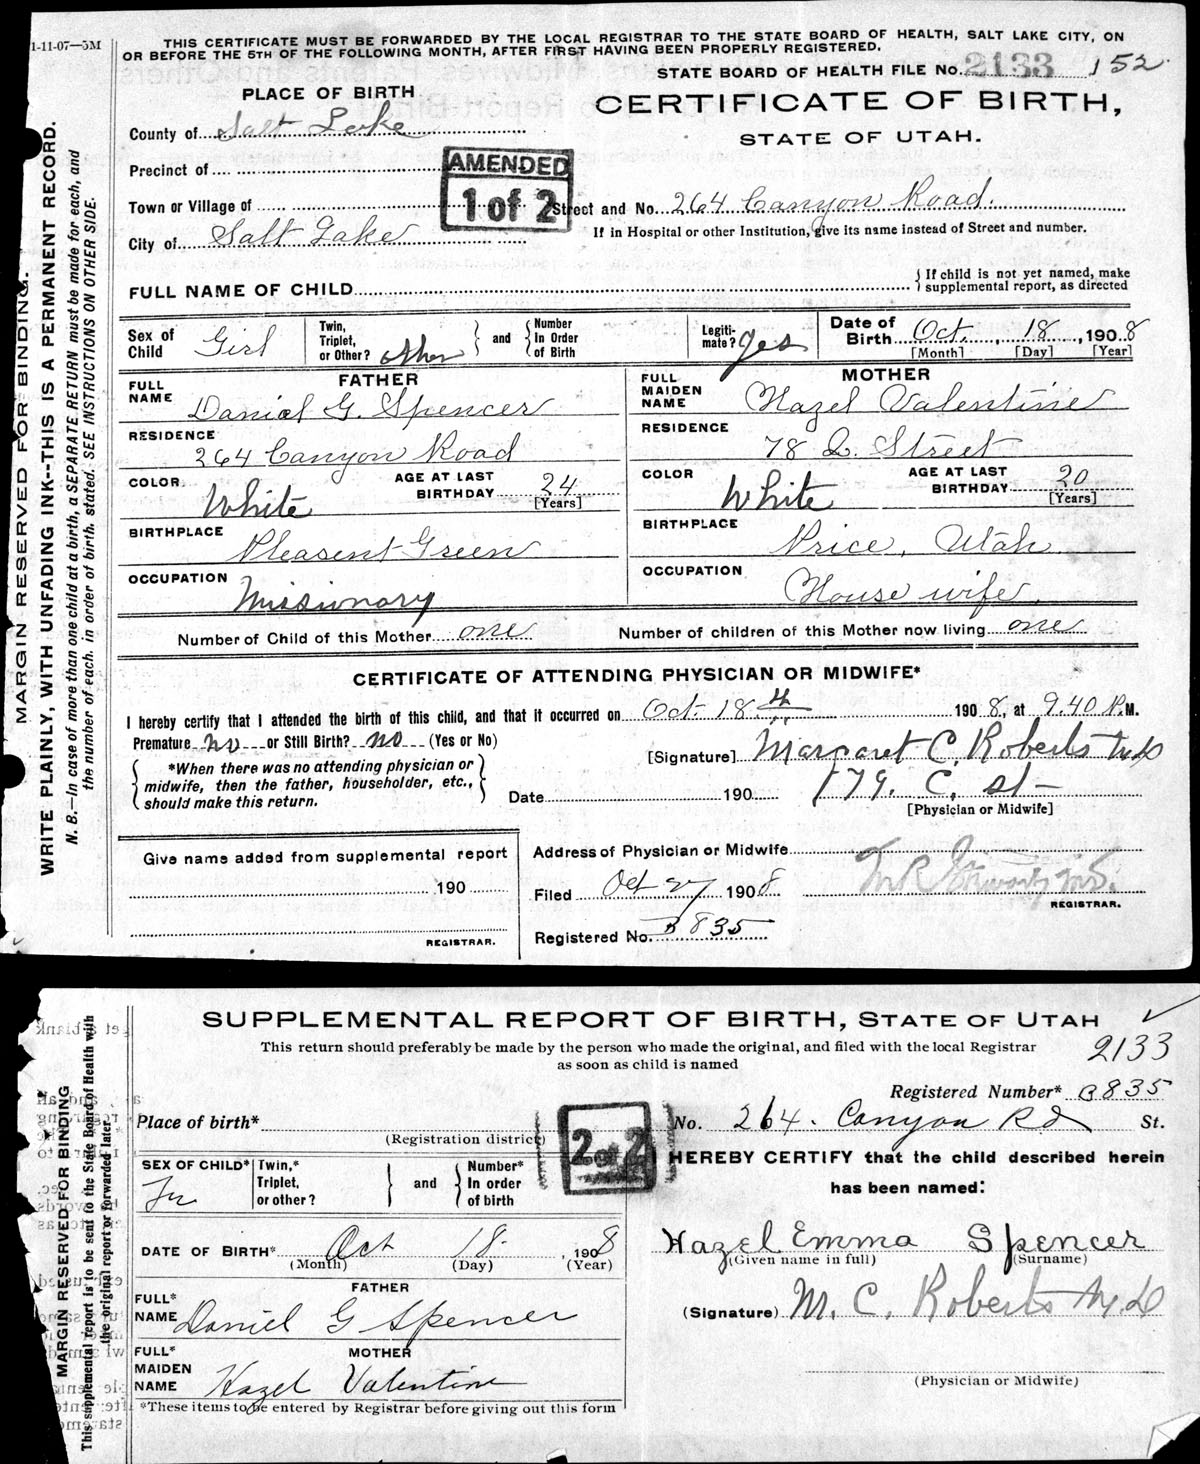 1-11-07—5M
THIS CERTIFICATE MUST BE FORWARDED BY THE LOCAL REGISTRAR TO THE STATE BOARD OF HEALTH, SALT LAKE CITY, ON
OR BEFORE THE 5TH OF THE FOLLOWING MONTH, AFTER FIRST HAVING BEEN PROPERLY REGISTERED.
STATE BOARD OF HEALTH FILE No. 2133 152
PLACE OF BIRTH
CERTIFICATE OF BIRTH,
STATE OF UTAH.
County of Salt Lake
Precinct of
AMENDED
1 of 2
Town or Village of
Street and No. 264 Canyon Road.
City of Salt Lake
If in Hospital or other Institution, give its name instead of Street and number.
FULL NAME OF CHILD
If child is not yet named, make
supplemental report, as directed
Sex of Child Girl
Twin, Triplet, or Other? other
and
Number In Order of Birth
Legiti-mate? yes
Date of Birth Oct. 18, 1908
[Month] [Day] [Year]
FATHER
FULL NAME Daniel G. Spencer
RESIDENCE 264 Canyon Road
COLOR White
AGE AT LAST BIRTHDAY 24
[Years]
BIRTHPLACE Pleasent Green
OCCUPATION Missionary
MOTHER
FULL MAIDEN NAME Hazel Valentine
RESIDENCE 78 Q. Street
COLOR White
AGE AT LAST BIRTHDAY 20
[Years]
BIRTHPLACE Price, Utah
OCCUPATION House wife.
Number of Child of this Mother one
Number of children of this Mother now living one
CERTIFICATE OF ATTENDING PHYSICIAN OR MIDWIFE*
I hereby certify that I attended the birth of this child, and that it occurred on Oct. 18 th 1908, at 9.40 P.M.
Premature no or Still Birth? no (Yes or No)
[Signature] Margaret C. Roberts M.D
*When there was no attending physician or
midwife, then the father, householder, etc.,
should make this return.
Date 190
179. C. st
[Physician or Midwife]
Give name added from supplemental report
190
REGISTRAR.
Address of Physician or Midwife
Filed Oct 27 1908
REGISTRAR.
Registered No. B835
MARGIN RESERVED FOR BINDING.
WRITE PLAINLY, WITH UNFADING INK--THIS IS A PERMANENT RECORD.
N. B.—In case of more than one child at a birth, a SEPARATE RETURN must be made for each, and
the number of each, in order of birth, stated. SEE INSTRUCTIONS ON OTHER SIDE.
SUPPLEMENTAL REPORT OF BIRTH, STATE OF UTAH
This return should preferably be made by the person who made the original, and filed with the local Registrar
as soon as child is named
2133
Registered Number* B835
Place of birth*
(Registration district)
2 of 2
No. 264. Canyon Rd St.
SEX OF CHILD*
Twin,* Triplet, or other?
and
Number* In order of birth
HEREBY CERTIFY that the child described herein
has been named:
DATE OF BIRTH* Oct 18. , 1908
(Month) (Day) (Year)
Hazel Emma Spencer
(Given name in full) (Surname)
FATHER
FULL* NAME Daniel G Spencer
(Signature) M. C. Roberts M.D
MOTHER
FULL* MAIDEN NAME Hazel Valentine
(Physician or Midwife)
*These items to be entered by Registrar before giving out this form
MARGIN RESERVED FOR BINDING
This supplemental report is to be sent to the State Board of Health with
the original report or forwarded later